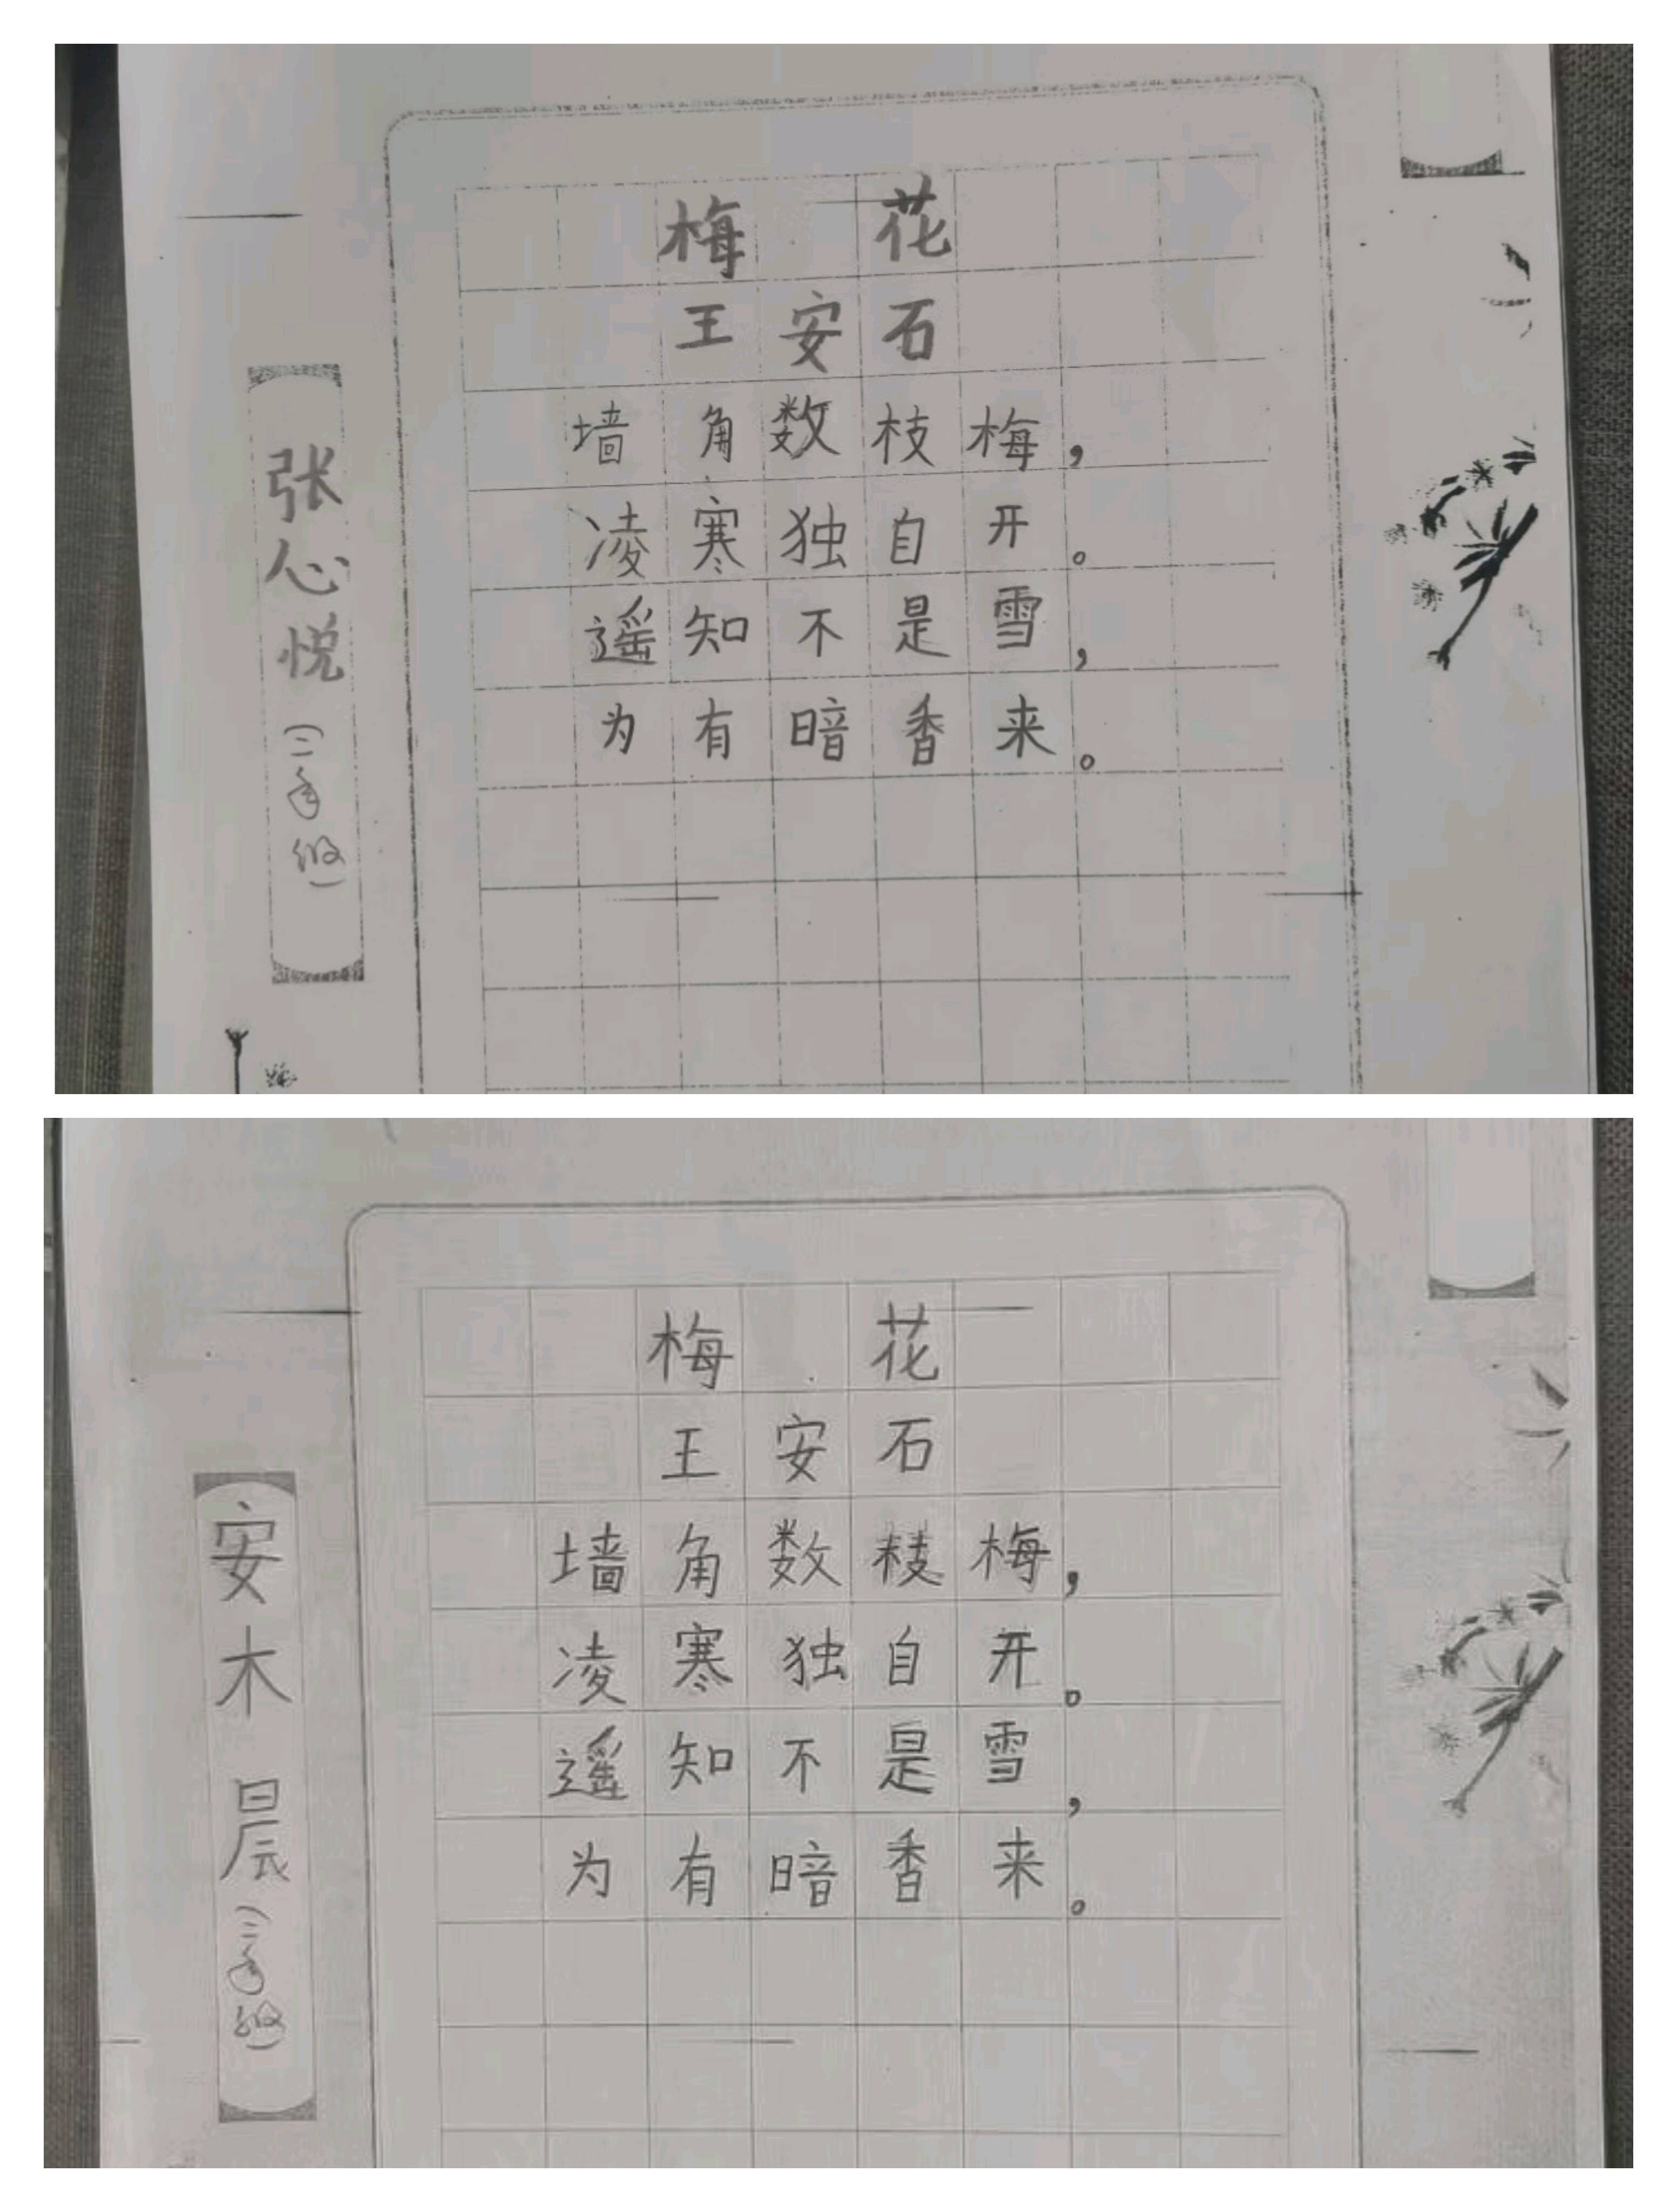 梅花
王安石
墙角数枝梅，
凌寒独自开。
遥知不是雪，
为有暗香来。
张心悦(二年级)
梅花
王安石
墙角数枝梅，
凌寒独自开。
遥知不是雪，
为有暗香来。
安木晨(二年级)